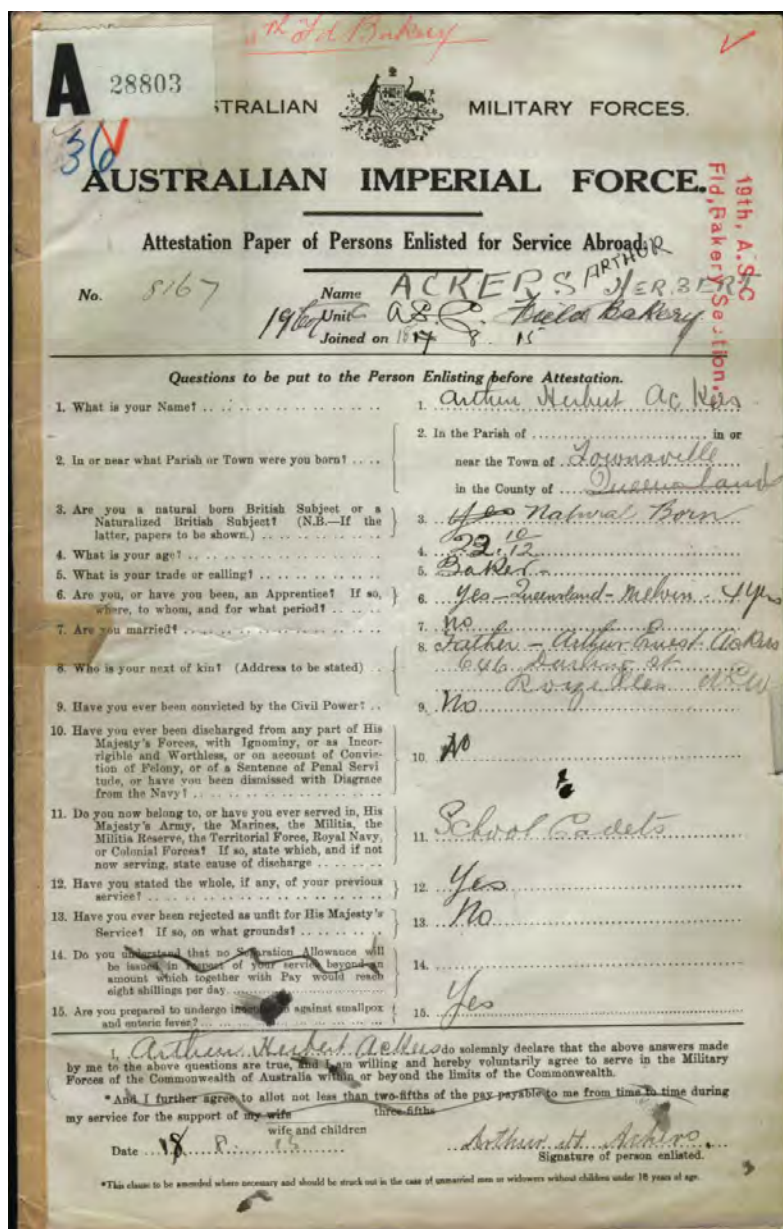 Fd Bakery
A 28803
36
STRALIAN MILITARY FORCES.
AUSTRALIAN IMPERIAL FORCE.
19th, A.S.C
Fld, Bakery Section,
Attestation Paper of Persons Enlisted for Service Abroad.
No. 8167 Name ACKERS ARTHUR HERBERT
Unit A.S.C. Field Bakery
Joined on 8. 15
Questions to be put to the Person Enlisting before Attestation.
1. What is your Name? 1. Arthur Herbert Ackers
2. In the Parish of in or
2. In or near what Parish or Town were you born? near the Town of Townsville
in the County of Queensland
3. Are you a natural born British Subject or a
Naturalized British Subject? (N.B.—If the 3. Yes Natural Born
latter, papers to be shown.)
4. What is your age? 4. 22 10/12
5. What is your trade or calling? 5. Baker
6. Are you, or have you been, an Apprentice? If so, 6. Yes - Queensland - Melvin - 4 yrs
where, to whom, and for what period?
7. Are you married? 7. No
8. Father - Arthur Ernest Ackers
8. Who is your next of kin? (Address to be stated) 646 Darling St
Rozelle NSW
9. Have you ever been convicted by the Civil Power? 9. No
10. Have you ever been discharged from any part of His
Majesty's Forces, with Ignominy, or as Incor-
rigible and Worthless, or on account of Convic-
tion of Felony, or of a Sentence of Penal Servi 10. No
tude, or have you been dismissed with Disgrace
from the Navy?
11. Do you now belong to, or have you ever served in, His
Majesty's Army, the Marines, the Militia, the
Militia Reserve, the Territorial Force, Royal Navy, 11. School Cadets
or Colonial Forces? If so, state which, and if not
now serving, state cause of discharge
12. Have you stated the whole, if any, of your previous 12. Yes
service?
13. Have you ever been rejected as unfit for His Majesty's 13. No
Service? If so, on what grounds?
14. Do you understand that no Separation Allowance will
be issued in respect of your service beyond an 14.
amount which together with Pay would reach
eight shillings per day
15. Are you prepared to undergo against smallpox 15. Yes
and enteric fever?
I, Arthur Herbert Ackers do solemnly declare that the above answers made
by me to the above questions are true, and I am willing and hereby voluntarily agree to serve in the Military
Forces of the Commonwealth of Australia within or beyond the limits of the Commonwealth.
*And I further agree to allot not less than two-fifths of the pay payable to me from time to time during
three-fifths
my service for the support of my wife
wife and children
Date 18 8. 15 Arthur H Ackers.
Signature of person enlisted.
*This clause to be amended where necessary and should be struck out in the case of unmarried men or widowers without children under 18 years of age.